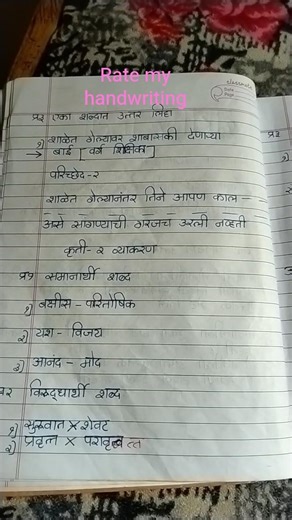 Rate my
handwriting
classmate
Date
Page
प्र१ एका शब्दात उत्तर लिहा
१) शाळेत गेल्यावर शाबासकी देणाऱ्या
→ बाई [वर्ग शिक्षिका]
परिच्छेद-२
शाळेत गेल्यानंतर तिने आपण काल –
असे सांगण्याची गरजच उरली नव्हती
कृती- २ व्याकरण
प्र१ समानार्थी शब्द
१) बक्षीस – परितोषिक
२) यश – विजय
३) आनंद – मोद
प्र२ विरुद्धार्थी शब्द
१) सुरुवात × शेवट
२) प्रवृत्त × परावृत्त
प्र२